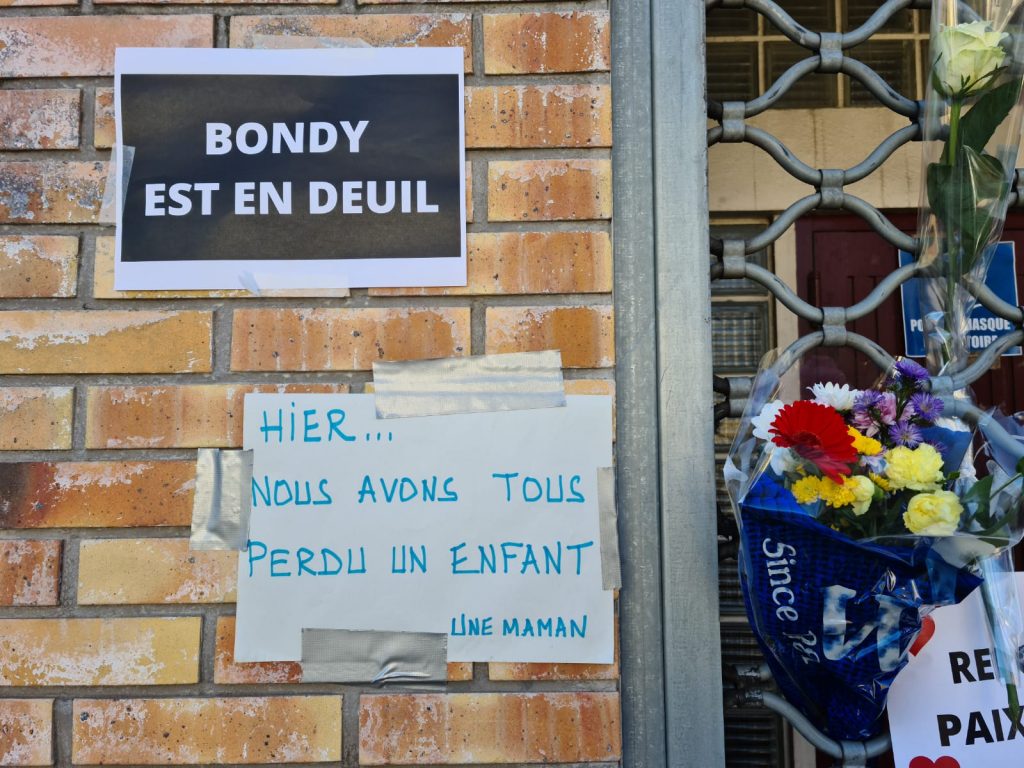 BONDY
EST EN DEUIL
HIER...
NOUS AVONS TOUS
PERDU UN ENFANT
UNE MAMAN
MASQUE
Since
RE
PAIX